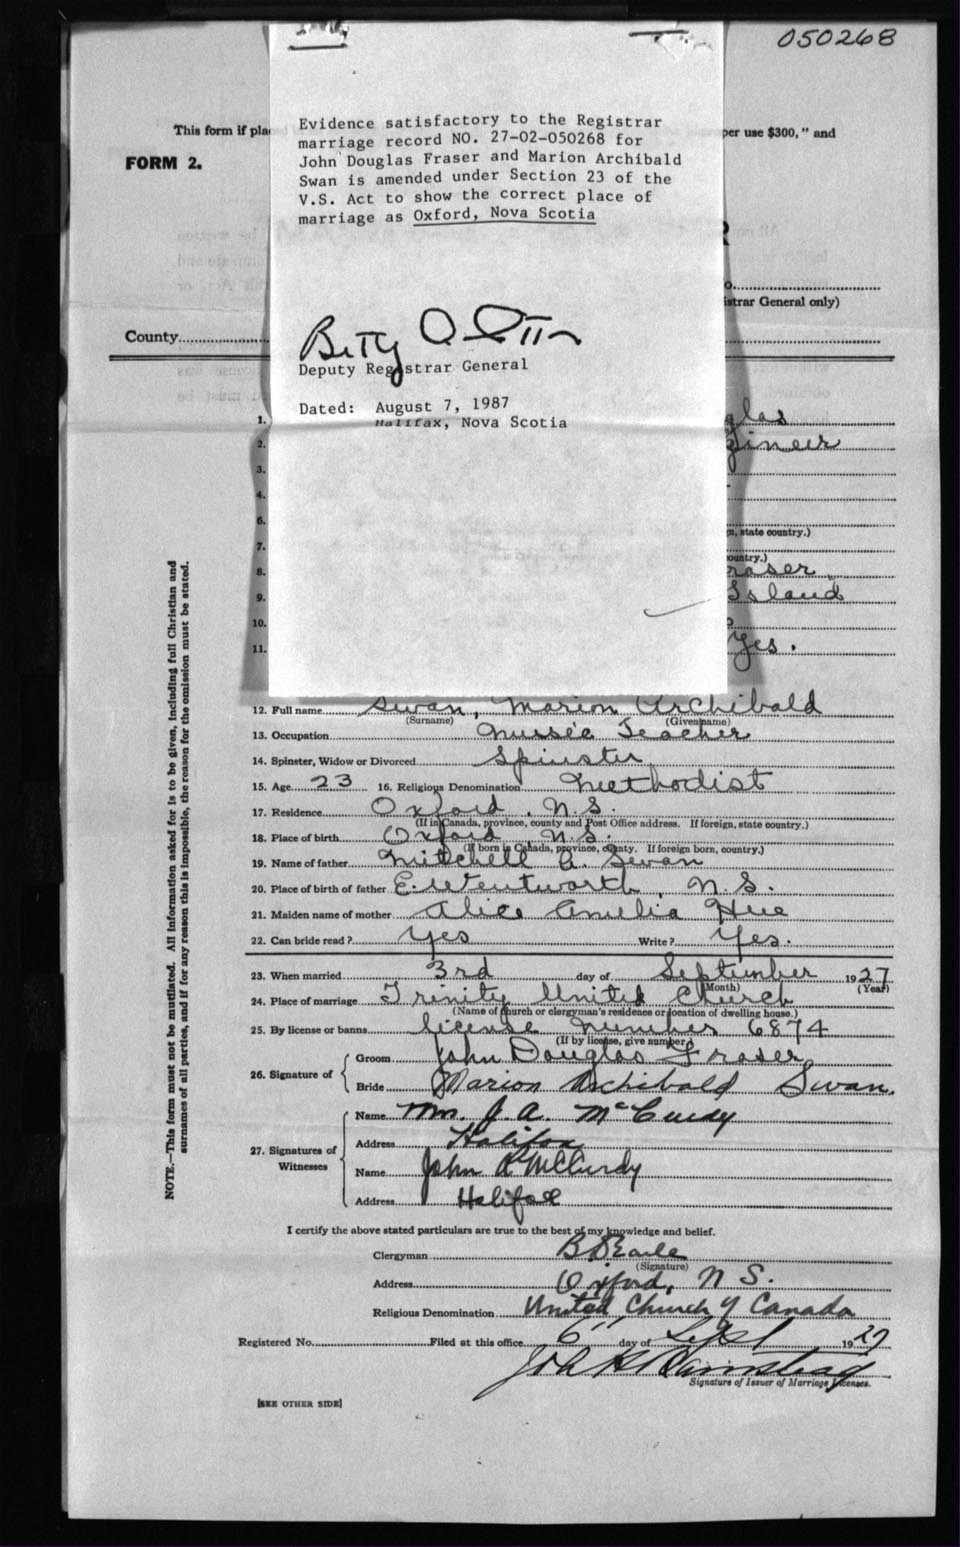 050268
This form if pla
per use $300," and
FORM 2.
Evidence satisfactory to the Registrar
marriage record NO. 27-02-050268 for
John Douglas Fraser and Marion Archibald
Swan is amended under Section 23 of the
V.S. Act to show the correct place of
marriage as Oxford, Nova Scotia
strar General only)
County
Betty
Deputy Registrar General
Dated: August 7, 1987
Halifax, Nova Scotia
1. glas
2. gineer
3.
4.
6.
n, state country.)
7.
ountry.)
8. raser
9. Island
10.
11. Yes.
12. Full name Swan, Marion Archibald
(Surname) (Given name)
13. Occupation Teacher
14. Spinster, Widow or Divorced Spinster
15. Age 23 16. Religious Denomination Methodist
17. Residence Oxford, N.S.
(If in Canada, province, county and Post Office address. If foreign, state country.)
18. Place of birth Oxford N.S.
(If born in Canada, province, county. If foreign born, country.)
19. Name of father Mitchell A. Swan
20. Place of birth of father E. Wentworth, N.S.
21. Maiden name of mother Alice Amelia Hue
22. Can bride read? Yes Write? Yes.
23. When married 3rd day of September 1927
(Month) (Year)
24. Place of marriage Trinity United Church
(Name of church or clergyman's residence or location of dwelling house.)
25. By license or banns license number 6874
(If by license, give number)
26. Signature of
Groom John Douglas Fraser
Bride Marion Archibald Swan.
27. Signatures of Witnesses
Name Mrs. J. A. McCurdy
Address Halifax
Name John R McCurdy
Address Halifax
I certify the above stated particulars are true to the best of my knowledge and belief.
Clergyman
(Signature)
Address Oxford, N S.
Religious Denomination United Church of Canada
Registered No. Filed at this office 6" day of Sept 1927
Signature of Issuer of Marriage Licenses.
[SEE OTHER SIDE]
NOTE.—This form must not be mutilated. All information asked for is to be given, including full Christian and
surnames of all parties, and if for any reason this is impossible, the reason for the omission must be stated.